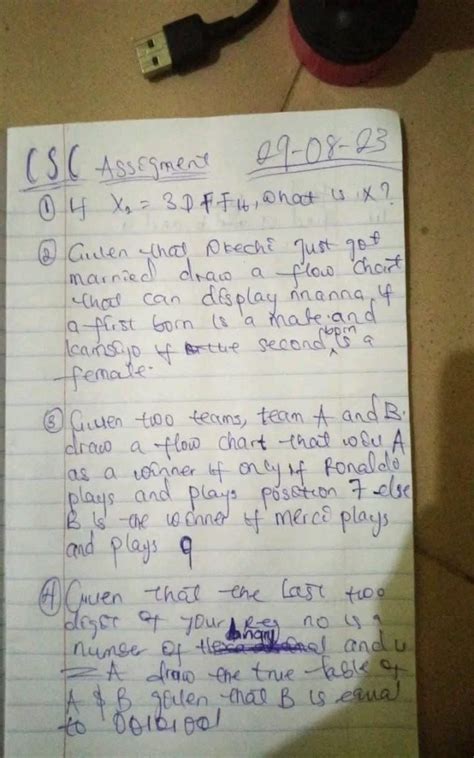 CSC Assegment 29-08-23
① If X₂ = 3DFFH, what is X?
② Given that Okechi just got
married draw a flow chart
that can display nnanna if
a first born is a male and
kamsiyo if the second born is a
female.
③ Given two teams, team A and B.
draw a flow chart that A
as a winner if only if Ronaldo
plays and plays position 7 else
B is the winner if merci plays
and plays 9
④ Given that the last two
digit of your Reg no is a
number of hangry and
= A draw the true table of
A & B given that B is equal
to 00101001